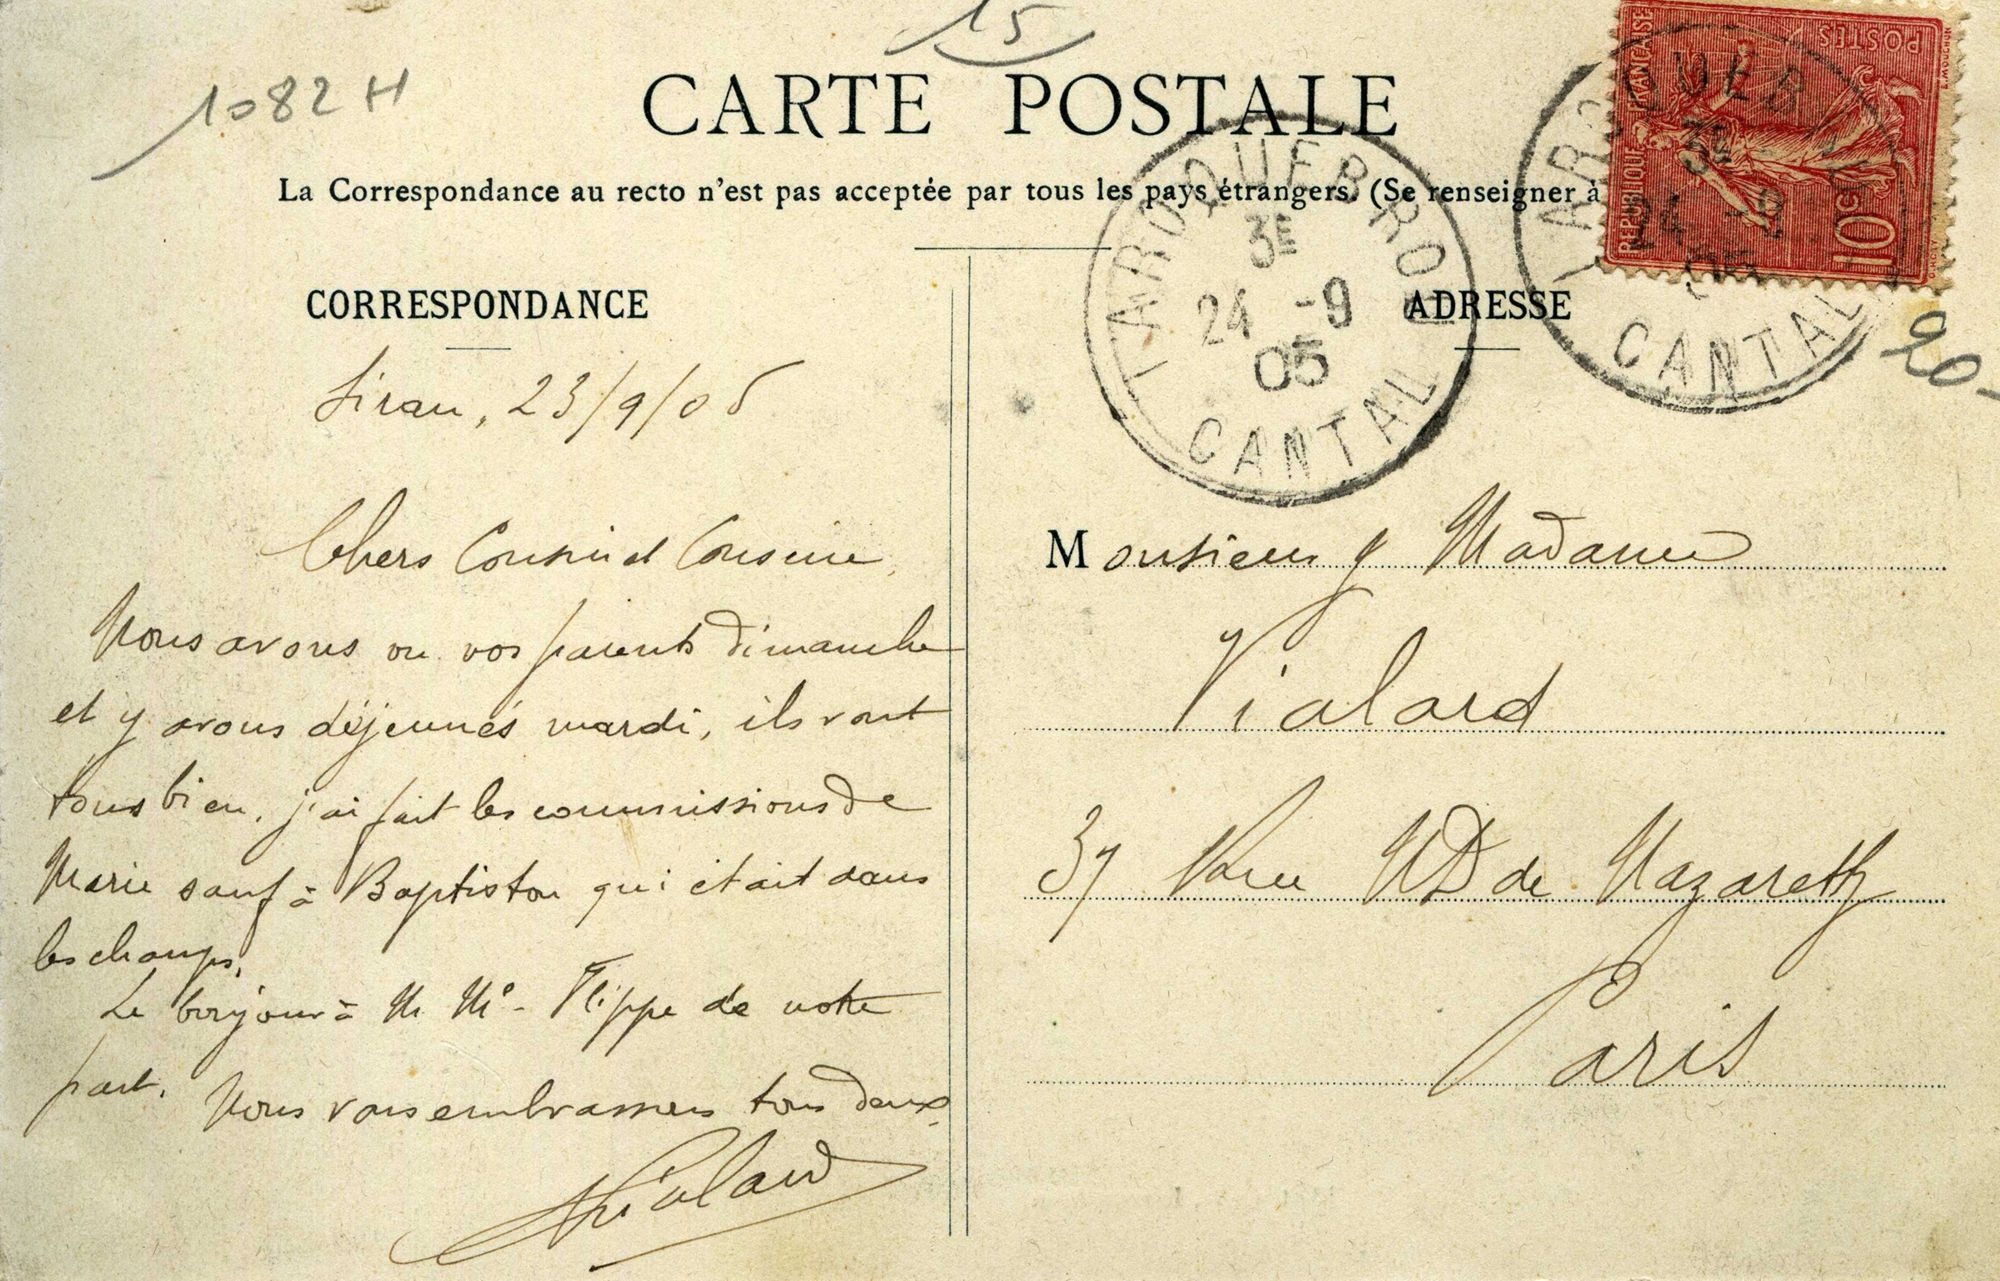 15
1082 H
CARTE POSTALE
La Correspondance au recto n'est pas acceptée par tous les pays étrangers. (Se renseigner à
CORRESPONDANCE
Siran, 23/9/05
Chers Cousin et Cousine,
Nous avons vu vos parents dimanche
et y avons déjeunés mardi, ils vont
tous bien, j'ai fait les commissions de
Marie sauf à Baptiston qui était dans
les champs,
Le bonjour à M Me - Flippe de notre
part.
Nous vous embrassons tous deux.
Vialard
ADRESSE
Monsieur & Madame
Vialard
37 Rue ND de Nazareth
Paris
LAROQUEBROU
3E
24 -9
05
CANTAL
LAROQUEB
3E
24 -9
05
CANTAL
RÉPUBLIQUE FRANÇAISE
POSTES
10c
20-